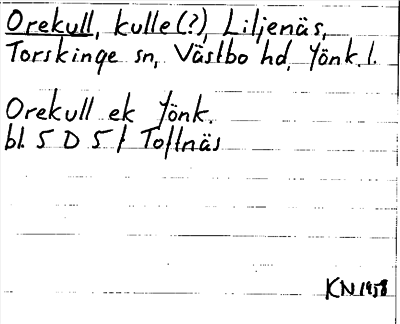 Orekull, kulle(?), Liljenäs,
Torskinge sn, Västbo hd, Jönk. l.
Orekull ek Jönk.
bl. 5 D 5 f Toftnäs
KN 1958